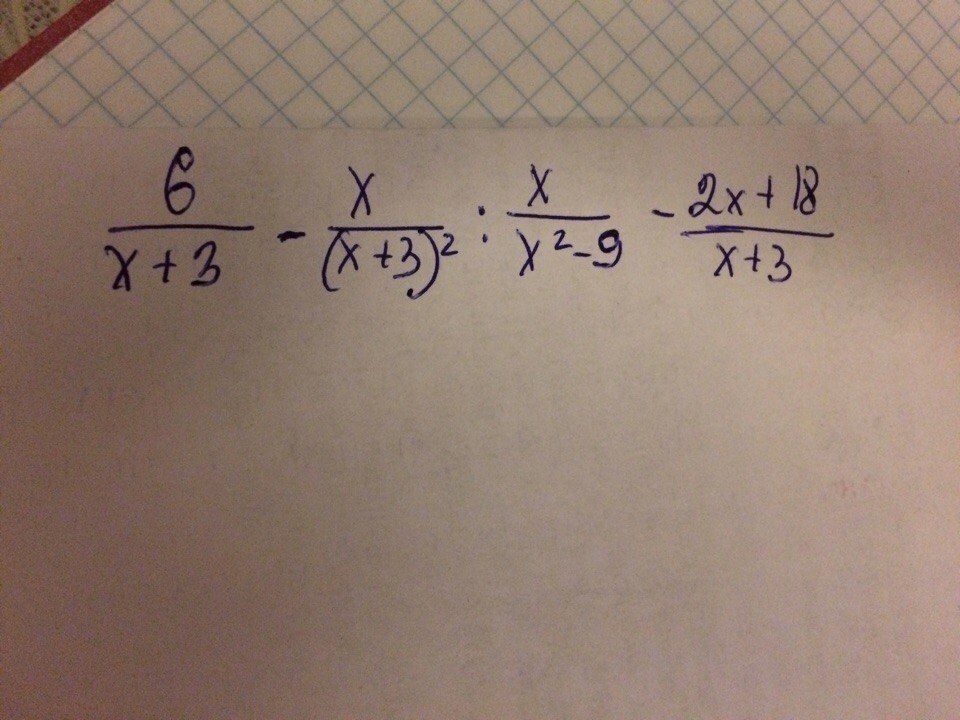 6/(x+3) - x/(x+3)² : x/(x²-9) - (2x+18)/(x+3)